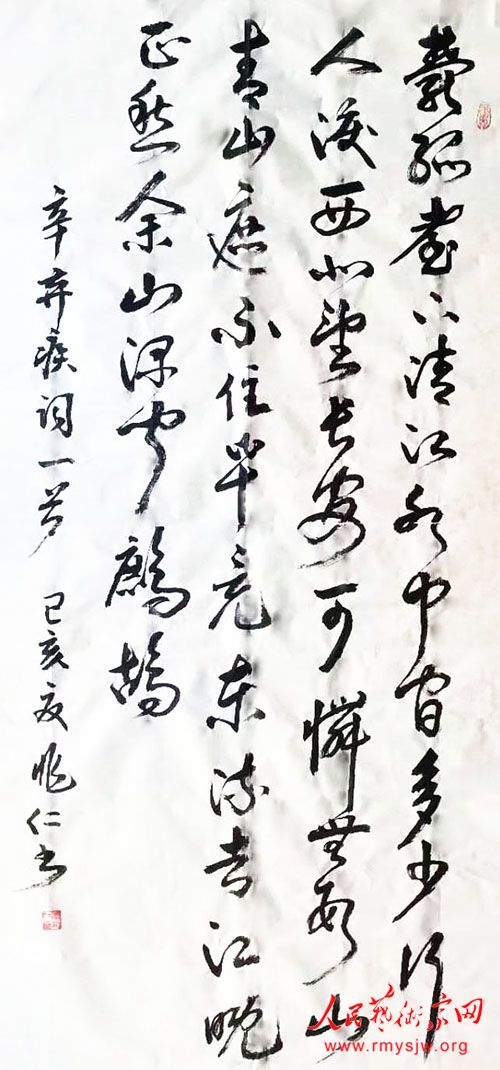 鬱孤臺下清江水中间多少行
人淚西北望長安可憐無數山
青山遮不住毕竟东流去江晚
正愁余山深闻鷓鴣
辛弃疾词一首 己亥夏 仁书
人民藝術家网
www.rmysjw.org